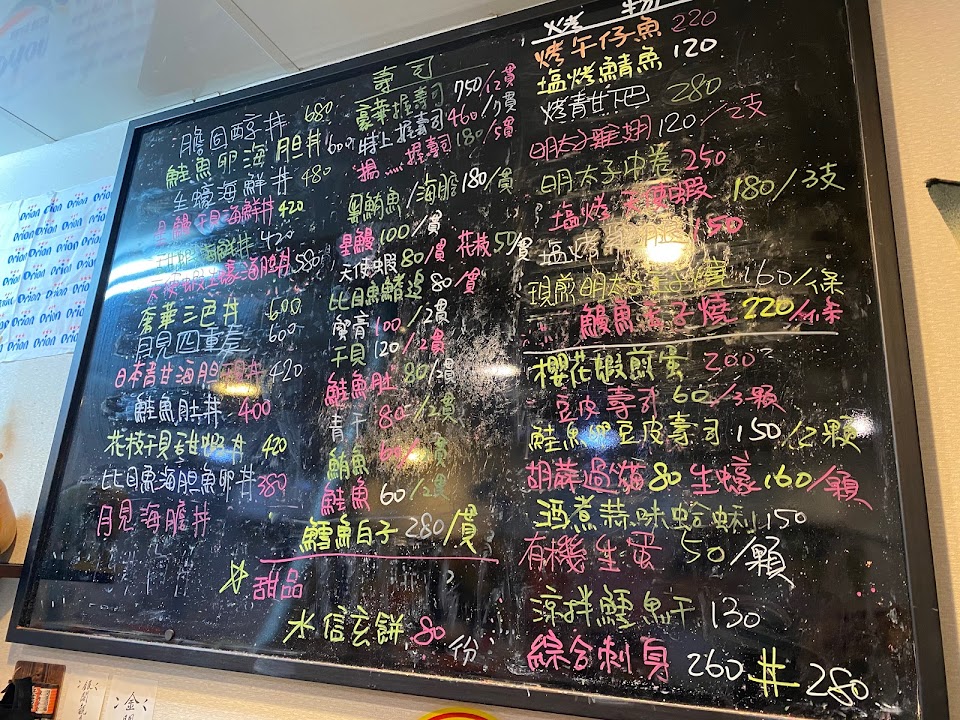 膽固醇丼 680
鮭魚卵海胆丼 600
生蠔海鮮丼 480
星鰻干貝海鮮丼 420
海鮮丼 420
生蠔海胆丼 580
奢華三色丼 600
月見四重奏 600
日本青甘海胆丼 420
鮭魚肚丼 400
花枝干貝甜蝦丼 420
比目魚海胆魚卵丼 380
月見海膽丼
壽司
豪華握壽司 750/12貫
特上握壽司 460/7貫
握壽司 180/5貫
黑鮪魚/海膽 180/貫
星鰻 100/貫
天使蝦 80/貫 花枝 50/貫
比目魚鰭邊 80/貫
蟹膏 100/2貫
干貝 120/2貫
鮭魚肚 80/2貫
青干 80/2貫
鮪魚 貫
鮭魚 60/2貫
鱈魚白子 280/貫
甜品
水信玄餅 80 份
烤物
烤午仔魚 220
塩烤鯖魚 120
烤青甘下巴 280
明太子雞翅 120/2支
明太子中卷 250
塩烤天使蝦 180/3支
塩烤 150
現煎明太子玉子燒 160/条
鰻魚玉子燒 220/条
櫻花蝦煎蛋 200
豆皮壽司 60/3顆
鮭魚卵豆皮壽司 150/2顆
胡蔴過貓 80 生蠔 160/顆
酒煮蒜味蛤蜊 150
有機生蛋 50/顆
涼拌鱈魚干 130
綜合刺身 260 丼 280
Orion